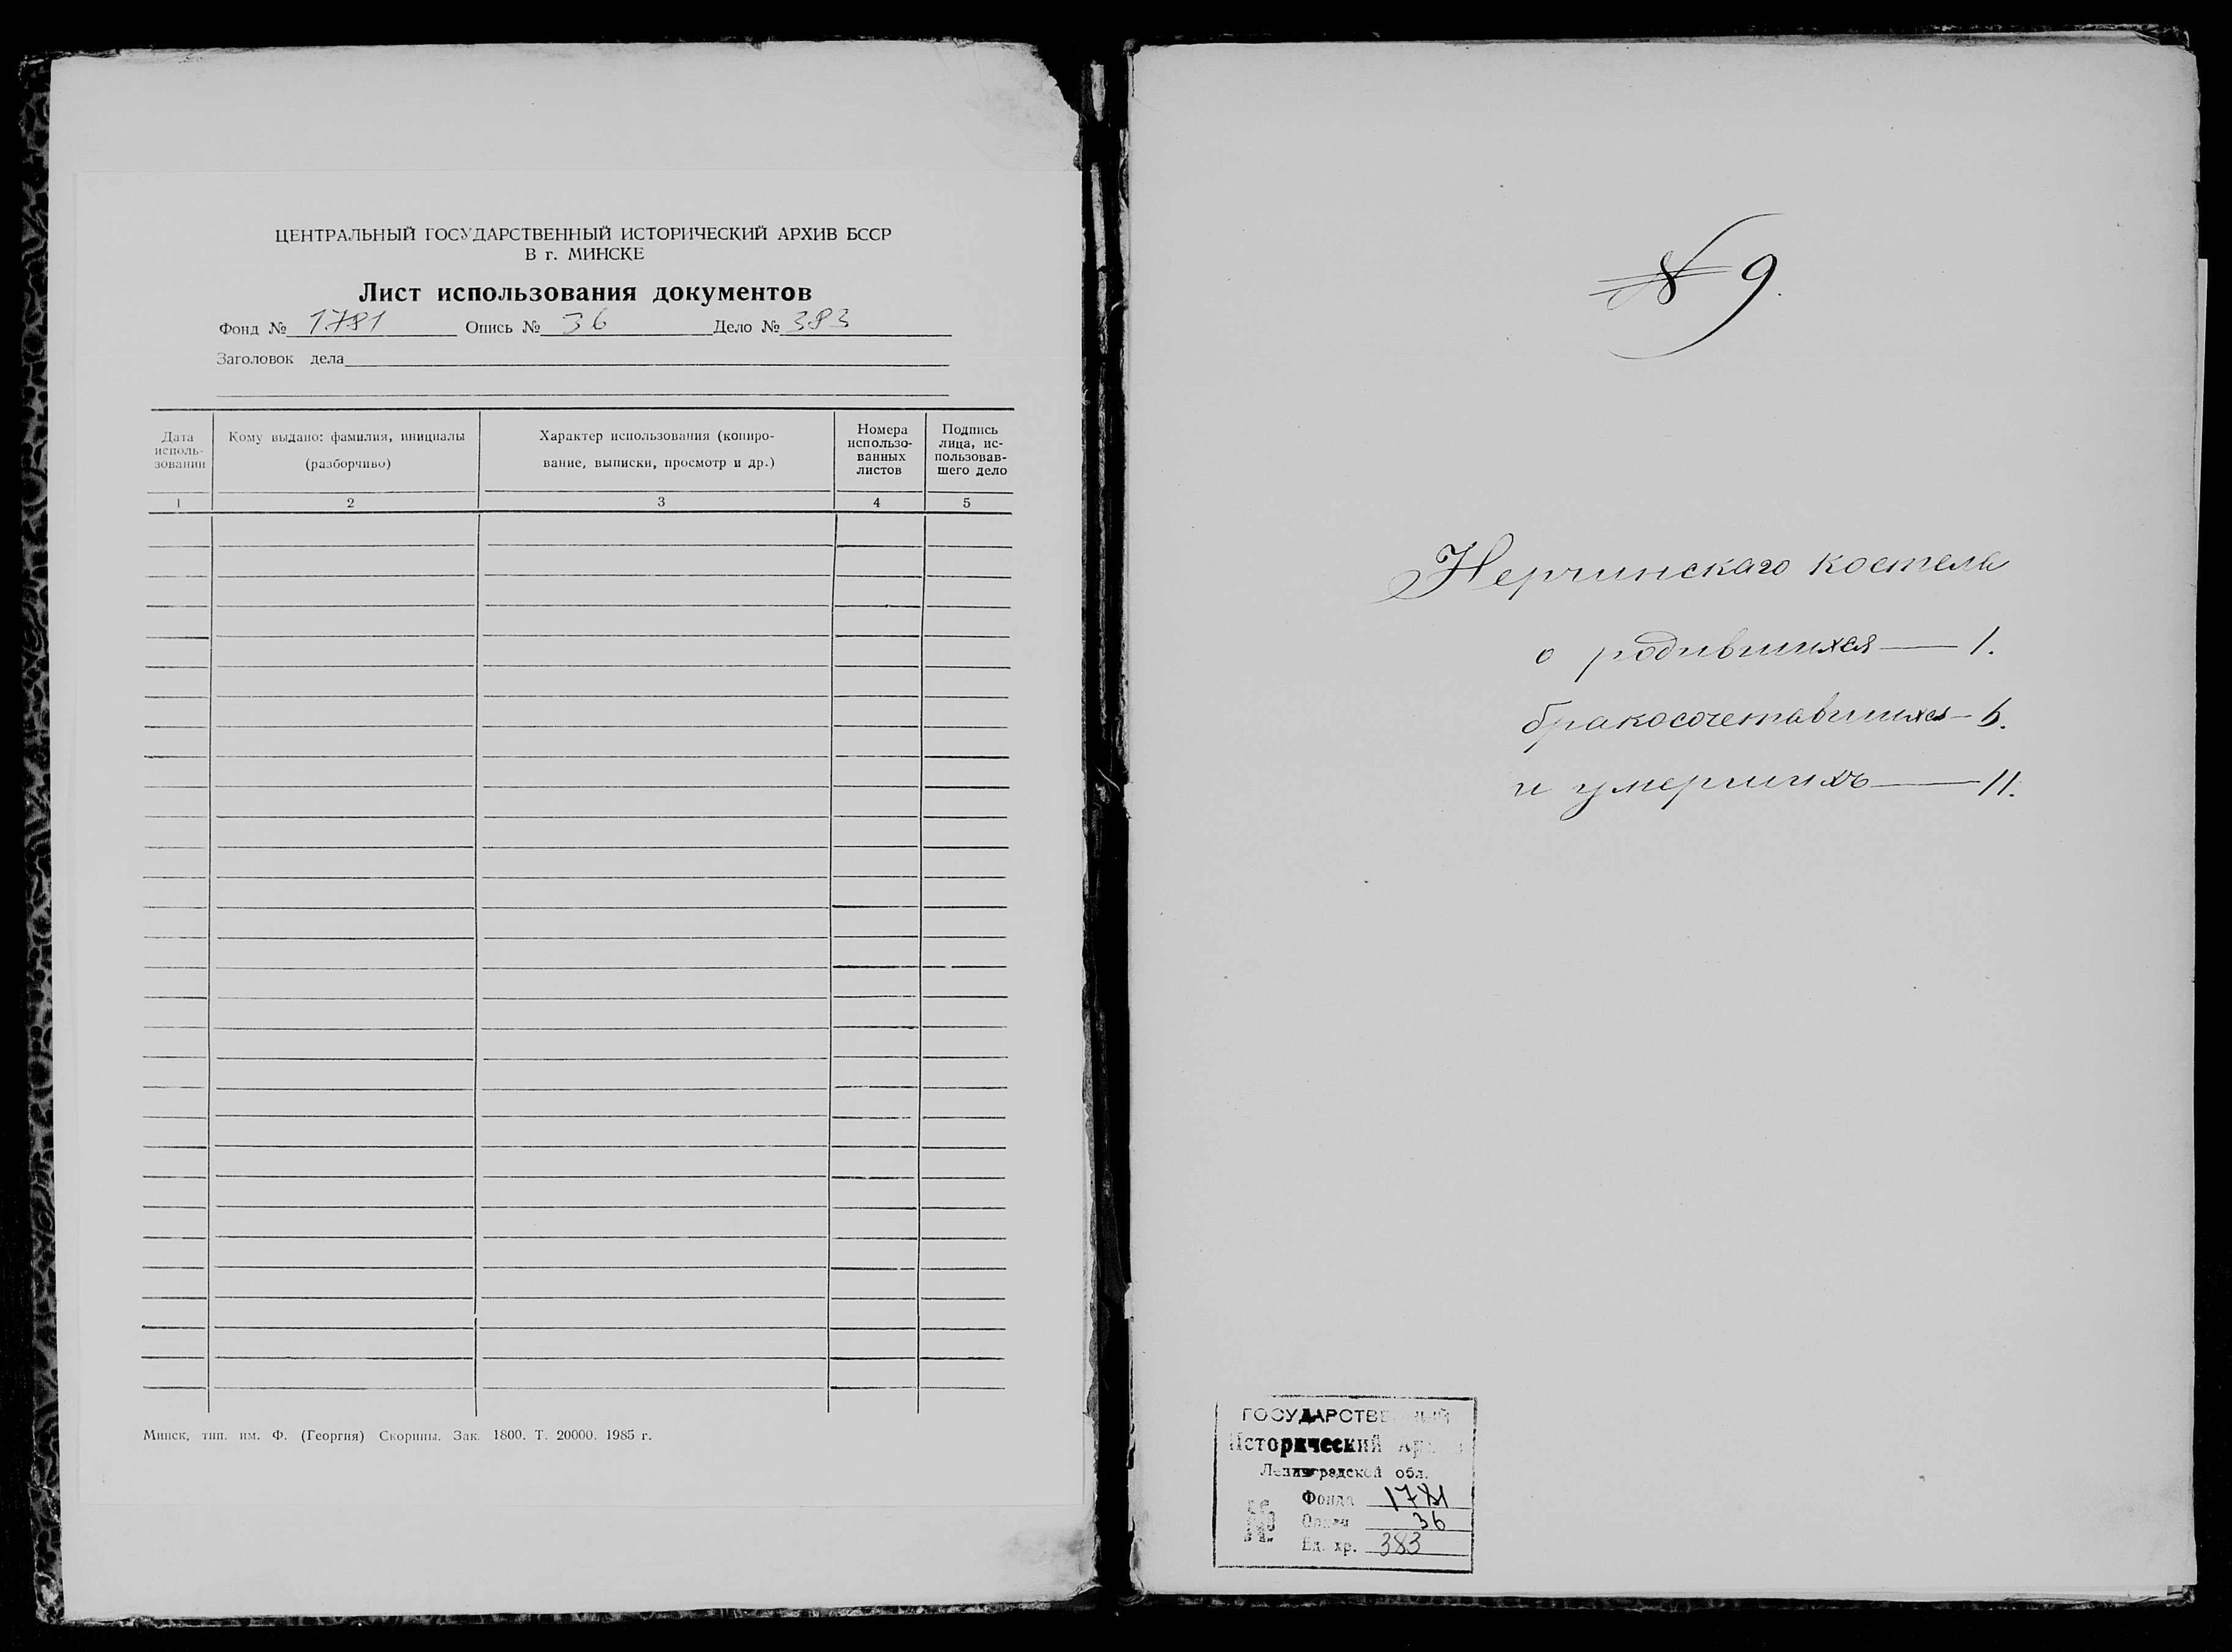 ЦЕНТРАЛЬНЫЙ ГОСУДАРСТВЕННЫЙ ИСТОРИЧЕСКИЙ АРХИВ БССР
В г. МИНСКЕ
Лист использования документов
Фонд № 1781 Опись № 36 Дело № 383
Заголовок дела
Дата исполь-зовании
Кому выдано: фамилия, инициалы (разборчиво)
Характер использования (копиро-вание, выписки, просмотр и др.)
Номера использо-ванных листов
Подпись лица, ис-пользовав-шего дело
1 2 3 4 5
Минск, тип. им. Ф. (Георгия) Скорины. Зак. 1800. Т. 20000. 1985 г.
№ 9.
Нерчинскаго костела
о родившихся — 1.
бракосочетавшихся — 6.
и умершихъ — 11.
ГОСУДАРСТВЕННЫЙ
Исторический Архив
Ленинградской обл.
Фонда 1781
Описи 36
Ед. хр. 383